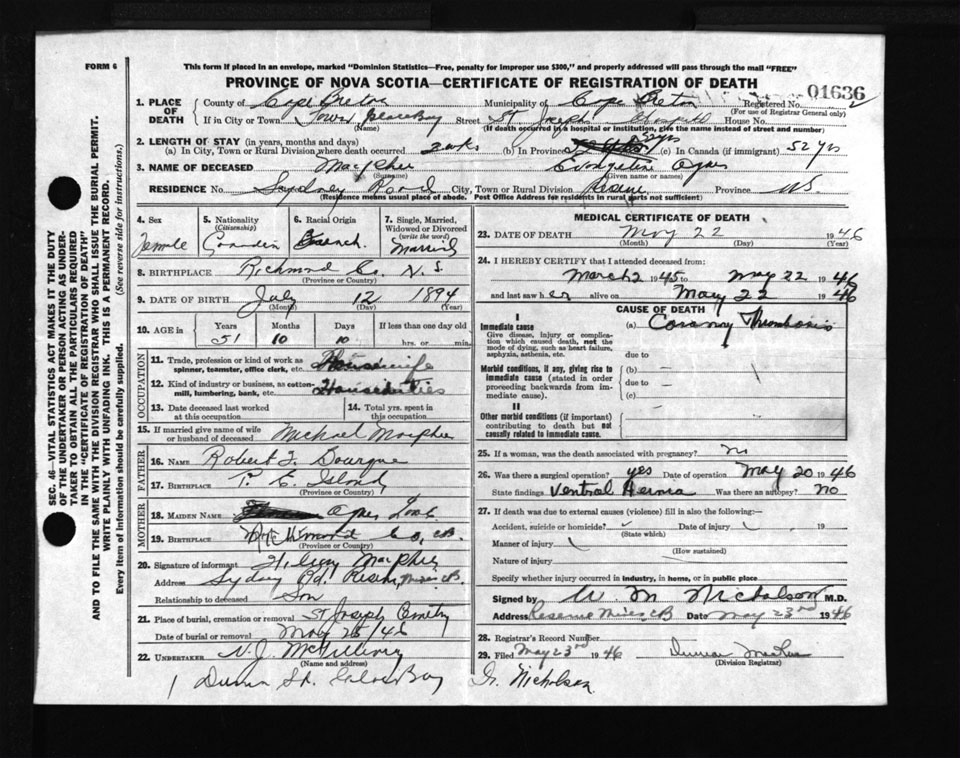 FORM 6
This form if placed in an envelope, marked "Dominion Statistics—Free, penalty for improper use $300," and properly addressed will pass through the mail "FREE"
PROVINCE OF NOVA SCOTIA—CERTIFICATE OF REGISTRATION OF DEATH
01636
1. PLACE OF DEATH County of Cape Breton Municipality of Cape Breton Registered No.
(For use of Registrar General only)
If in City or Town Town Glace Bay Street St Joseph Hospital House No.
(Name) (If death occurred in a hospital or institution, give the name instead of street and number)
2. LENGTH OF STAY (in years, months and days)
(a) In City, Town or Rural Division where death occurred 2 wks (b) In Province 52 yrs (c) In Canada (if immigrant) 52 yrs
3. NAME OF DECEASED MacPhee Evangeline Agnes
(Surname) (Given name or names)
RESIDENCE No. Sydney Road City, Town or Rural Division Reserve Province N.S.
(Residence means usual place of abode. Post Office Address for residents in rural parts not sufficient)
4. Sex Female
5. Nationality (Citizenship) Canadian
6. Racial Origin French
7. Single, Married, Widowed or Divorced (write the word) Married
8. BIRTHPLACE Richmond Co. N.S.
(Province or Country)
9. DATE OF BIRTH July 12 1894
(Month) (Day) (Year)
10. AGE in Years 51 Months 10 Days 10 If less than one day old hrs. or min.
OCCUPATION
11. Trade, profession or kind of work as spinner, teamster, office clerk, etc. Housewife
12. Kind of industry or business, as cotton-mill, lumbering, bank, etc. Houseduties
13. Date deceased last worked at this occupation
14. Total yrs. spent in this occupation
15. If married give name of wife or husband of deceased Michael Macphee
FATHER
16. NAME Robert J.
17. BIRTHPLACE P. E. Island
(Province or Country)
MOTHER
18. MAIDEN NAME Agnes
19. BIRTHPLACE Richmond Co, C.B.
(Province or Country)
20. Signature of informant Hilary MacPhee
Address Sydney Rd. Reserve Mines C.B.
Relationship to deceased Son
21. Place of burial, cremation or removal St Joseph Cemetery
Date of burial or removal May 25/46
22. UNDERTAKER V. J. McGillivray
(Name and address)
St. Glace Bay
MEDICAL CERTIFICATE OF DEATH
23. DATE OF DEATH May 22 1946
(Month) (Day) (Year)
24. I HEREBY CERTIFY that I attended deceased from:
March 2 1945 to May 22 1946
and last saw her alive on May 22 1946
CAUSE OF DEATH
I
Immediate cause (a) Coronary Thrombosis
Give disease, injury or complication which caused death, not the mode of dying, such as heart failure, asphyxia, asthenia, etc.
due to
Morbid conditions, if any, giving rise to immediate cause (stated in order proceeding backwards from immediate cause).
(b)
due to
(c)
II
Other morbid conditions (if important) contributing to death but not causally related to immediate cause.
25. If a woman, was the death associated with pregnancy? No
26. Was there a surgical operation? yes Date of operation May 20 1946
State findings Ventral Hernia Was there an autopsy? No
27. If death was due to external causes (violence) fill in also the following:—
Accident, suicide or homicide? Date of injury 19
(State which)
Manner of injury
(How sustained)
Nature of injury
Specify whether injury occurred in industry, in home, or in public place
Signed by W. M Nicholson M.D.
Address Reserve Mines CB Date May 23rd 1946
28. Registrar's Record Number
29. Filed May 23rd 1946
(Division Registrar)
Nicholson
SEC. 46—VITAL STATISTICS ACT MAKES IT THE DUTY
OF THE UNDERTAKER OR PERSON ACTING AS UNDER-
TAKER TO OBTAIN ALL THE PARTICULARS REQUIRED
IN THE "CERTIFICATE OF REGISTRATION OF DEATH"
AND TO FILE THE SAME WITH THE DIVISION REGISTRAR WHO SHALL ISSUE THE BURIAL PERMIT.
WRITE PLAINLY WITH UNFADING INK. THIS IS A PERMANENT RECORD.
Every item of information should be carefully supplied. (See reverse side for instructions.)